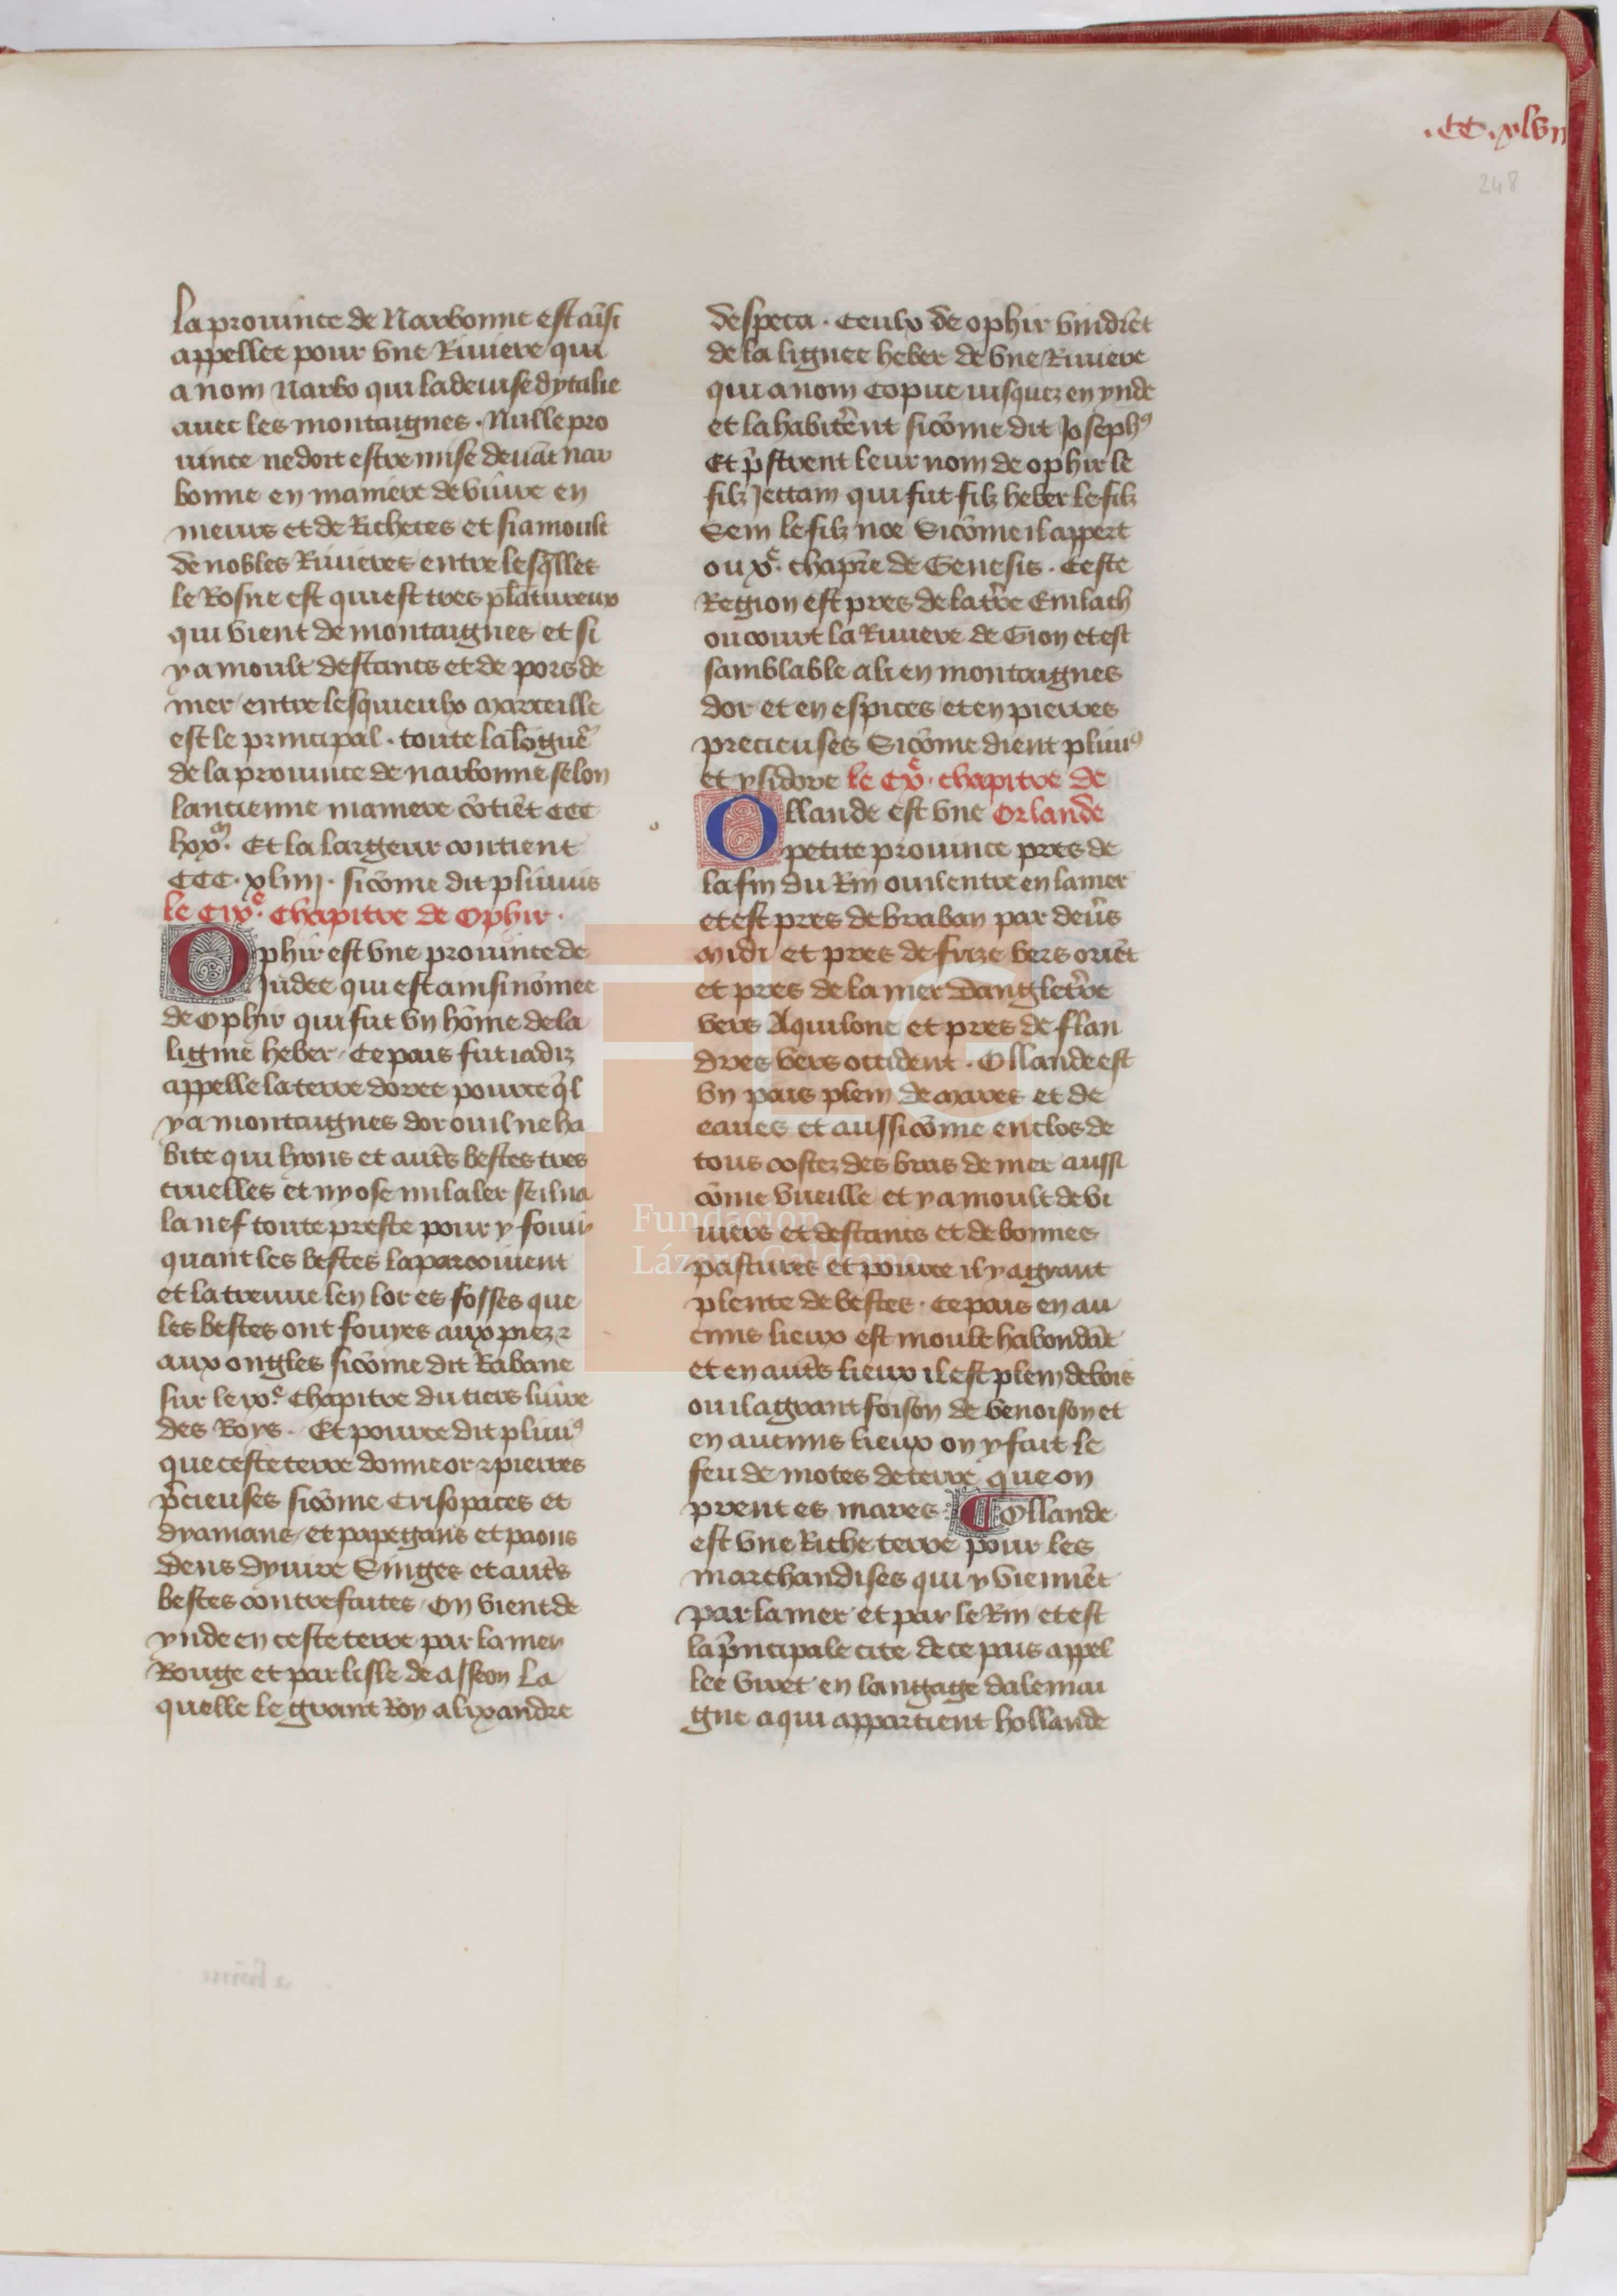 .CC.xlvii
248
La prouince de Narbonne est aīsi
appellee pour vne Riuiere qui
a nom Narbo qui la deuise dytalie
auec les montaignes . Nulle pro
uince ne doit estre mise deuāt nar
bonne en maniere de viure en
meurs et de Richeces et si a moult
de nobles Riuieres entre lesq̄lles
le Rosne est qui est tres plātureux
qui vient de montaignes et si
y a moult destancs et de pors de
mer entre lesquieulx marceille
est le principal . toute la lōguer̄
de la prouince de narbonne selon
lancienne maniere cōtiēt CCC
lxx . Et la largeur contient
CCC . xliiii . sicōme dit plinius
le Cixe . chapitre de Ophir .
Ophir est vne prouince de
Judee qui est ainsi nōmee
de Ophir qui fut vn hōme de la
lignie heber . Ce pais fut iadiz
appelle la terre doree pource q̄l
y a montaignes dor ou il ne ha
bite qui lyons et aut̄s bestes tres
cruelles et ny ose nul aler se il na
la nef toute preste pour y fouir
quant les bestes laparcoiuent
et la treuue len lor es fosses que
les bestes ont foures aux piez ⁊
aux ongles sicōme dit Rabane
sur le xe . chapitre du tiers liure
des Roys . Et pource dit pliniꝰ
que ceste terre donne or ⁊ pierres
p̄cieuses sicōme crisopaces et
dyamans et papegans et paons
dens dyuire Singes et aut̄s
bestes contrefaites . On vient de
ynde en ceste terre par la mer
Rouge et par lisle de asseon La
quelle le grant Roy alixandre
despeca . Ceulx de ophir vindrēt
de la lignee heber de vne Riuiere
qui a nom Copue iusquez en ynde
et la habitērent sicōme dit Josephꝰ
Et p̄strent leur nom de ophir le
filz Jectam qui fut filz heber le filz
Sem le filz noe Sicōme il appert
ou xe . chap̄re de Genesis . Ceste
Region est pres de la tr̄re Euilach
ou court la Riuiere de Gion et est
samblable a li en montaignes
dor et en espices et en pierres
precieuses Sicōme dient pliniꝰ
et ysidore le Cxe . chapitre de
Ollande est vne Orlande
petite prouince pres de
la fin du Rin ou il entre en la mer
et est pres de braban par deūs
midi et pres de frize vers oriēt
et pres de la mer Dangletr̄re
vers Aquilone et pres de flan
dres vers occident . Ollande est
vn pais plein de mares et de
eaues et aussi cōme enclos de
tous costez des bras de mer aussi
cōme vne ille et y a moult de vi
uiers et destancs et de bonnes
pastures et pource il y a grant
plente de bestes . Ce pais en au
cuns lieux est moult habondāt
et en aut̄s lieux il est plein de bois
ou il a grant foison de venoison et
en aucuns lieux on y fait le
feu de motes de terre que on
prent es mares . Ollande
est vne Riche terre pour les
marchandises qui y viennēt
par la mer et par le Rin et est
la p̄ncipale cite de ce pais appel
lee viret en langage dalemai
gne a qui appartient hollande
FLG
Fundación
Lázaro Galdiano